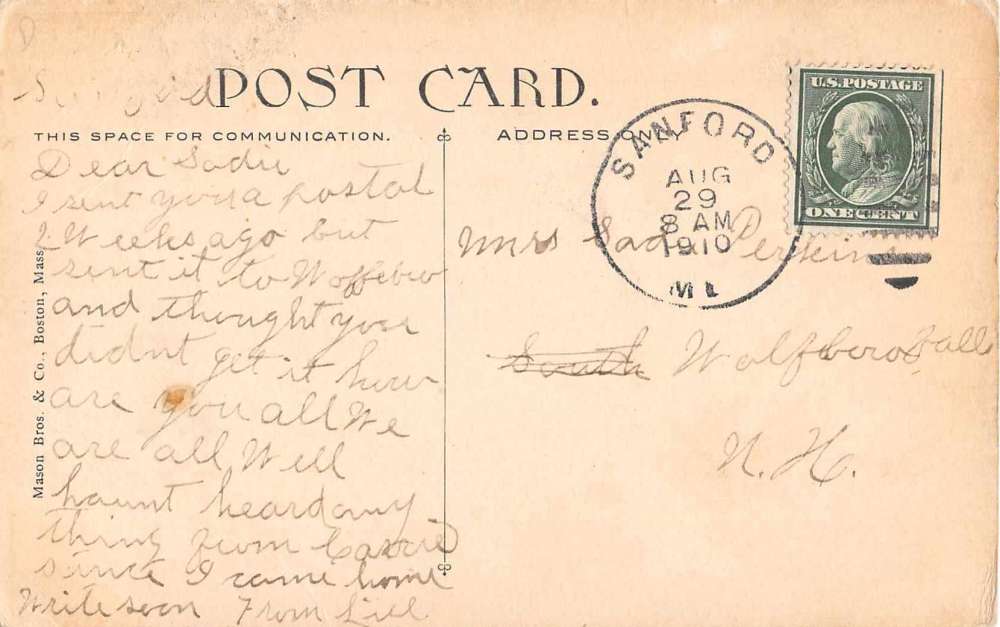 POST CARD.
THIS SPACE FOR COMMUNICATION.
ADDRESS ONLY
U.S. POSTAGE
ONE CENT
SANFORD
AUG
29
8 AM
1910
Mason Bros. & Co., Boston, Mass.
Dear Sadie
I sent you a postal
2 Weeks ago but
sent it to Wolfebro
and thought you
didnt get it how
are you all We
are all Well
haunt heard any
thing from Carrie
since I came home
Write soon From
Mrs Sadie Perkins
South Wolfboro Falls
N. H.